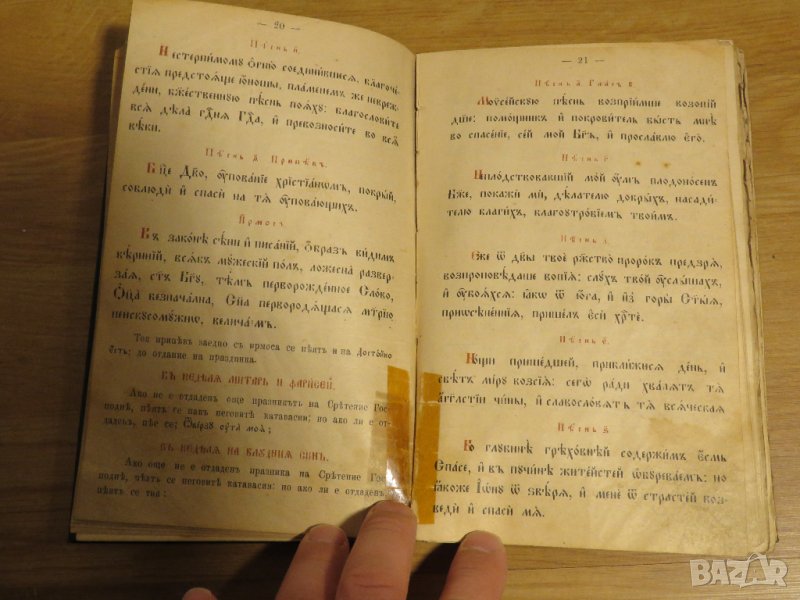 — 20 —
Пѣснь и҃.
Нестерпимому огню соединившеся, благоче-
стїѧ предстоѧще юношы, пламенемъ же невреж-
дени, бжⷭ҇твенную пѣснь поѧху: благословите
всѧ дѣла гдⷭ҇нѧ Гдⷭ҇а, и превозносите во всѧ
вѣки.
Пѣснь ѳ҃ Припѣвъ.
Бц҃е Дв҃о, упованїе хрїстїаномъ, покрый,
соблюди и спаси на тѧ уповающихъ.
Ирмосъ
Въ законѣ сѣни и писанїй, образъ видимъ
вѣрнїй, всѧкъ мужескїй полъ, ложесна развер-
заѧ, ст҃ъ Бг҃у, тѣмъ перворожденное Слово,
Оц҃а безначална, Сн҃а первородѧщасѧ мт҃рїю
неискусомужнѡ, величаемъ.
Тоя припѣвъ заедно съ ирмоса се пѣятъ и на Достойно
есть; до отданіе на праздника.
ВЪ НЕДѢЛЯ МИТАРЬ И ФАРИСЕЙ.
Ако не е отдаденъ още праздникътъ на Срѣтеніе Гос-
подне, пѣятъ се павъ неговитѣ катавасіи: но ако ли е от-
даденъ, пѣе се; Ѿвѣрзу оуста моѧ;
ВЪ НЕДѢЛЯ НА БЛУДНИЯ СЫНЪ.
Ако още не е отдаденъ празника на Срѣтеніе Гос-
подне, пѣятъ се неговитѣ катавасіи: но ако ли е отдаденъ,
пѣятъ се тия:
— 21 —
Пѣснь а҃ Гласъ в҃
Моусейскую пѣснь воспрїимше возопїй
дꙋше: помощникъ и покровитель бысть мнѣ
во спасенїе, сей мой Бг҃ъ, и прославлю єго.
Пѣснь г҃.
Неплодствовавшїй мой умъ плодоносенъ
Бж҃е, покажи ми, дѣлателю добрыхъ, насади-
телю благихъ, благоутробїемъ твоимъ.
Пѣснь д҃.
Єже ѿ дв҃ы твоє ржⷭ҇тво пророкъ предзрѧ,
возпроповѣдаше вопїѧ: слухъ твой услышахъ,
и убоѧхсѧ: ꙗкѡ ѿ юга, и из̾ горы ст҃ыѧ,
прїѡсѣненныѧ, пришелъ єси хрⷭ҇те.
Пѣснь є҃.
Нощи пришедшей, приближисѧ день, и
свѣтъ мїру возсїѧ: сегѡ ради хвалѧтъ тѧ
аггелстїи чины, и славословѧтъ тѧ всѧческаѧ
Пѣснь ѕ҃.
Во глубинѣ грѣховнѣй содержимъ єсмь
Спасе, и въ пучинѣ житейстей ѡбуреваемъ: но
ꙗкоже Іѡну ѿ звѣрѧ, и мене ѿ страстей возве-
ди и спаси мѧ.
BAZAR